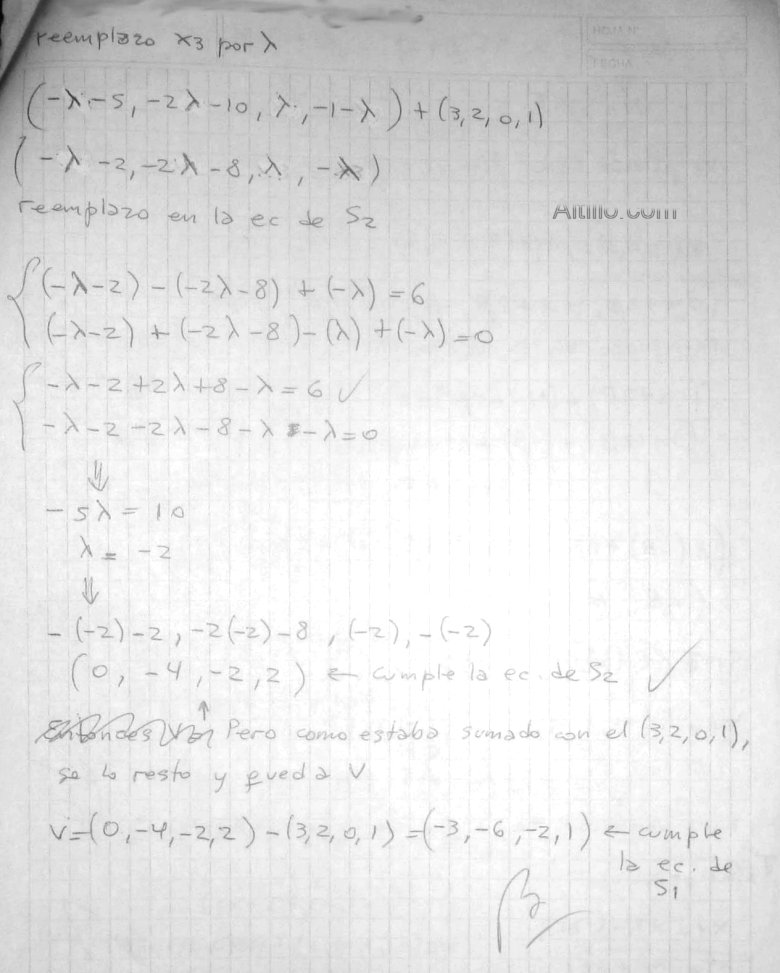 HOJA N°
FECHA
reemplazo x3 por λ
(-λ-5, -2λ-10, λ, -1-λ) + (3,2,0,1)
(-λ-2, -2λ-8, λ, -λ)
reemplazo en la ec de S2
Altillo.com
(-λ-2) - (-2λ-8) + (-λ) = 6
(-λ-2) + (-2λ-8) - (λ) + (-λ) = 0
-λ-2+2λ+8-λ = 6 ✓
-λ-2-2λ-8-λ-λ = 0
⇓
-5λ = 10
λ = -2
⇓
-(-2)-2, -2(-2)-8, (-2), -(-2)
(0, -4, -2, 2) ← cumple la ec. de S2 ✓
↑
Pero como estaba sumado con el (3,2,0,1),
se lo resto y queda V
V=(0,-4,-2,2) - (3,2,0,1) = (-3,-6,-2,1) ← cumple
la ec. de
S1